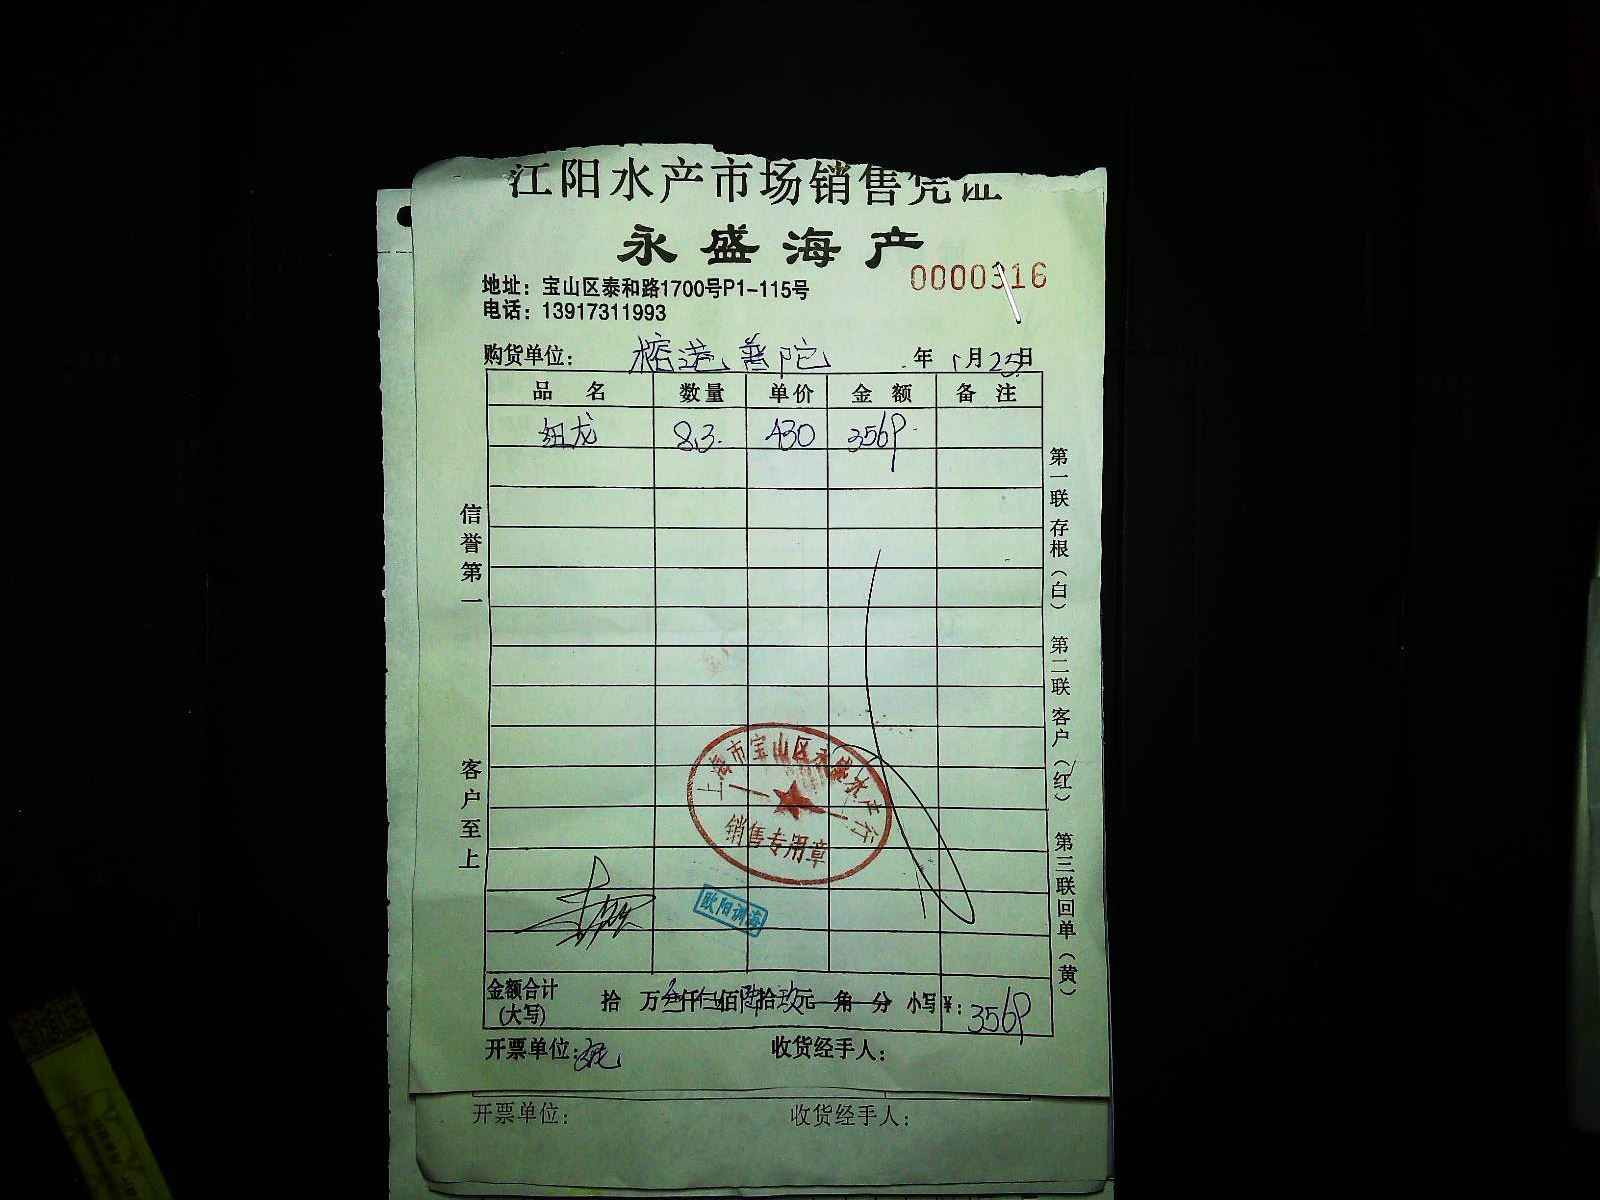 江阳水产市场销售凭证
永盛海产
0000316
地址：宝山区泰和路1700号P1-115号
电话：13917311993
购货单位：榕港普陀 年 1月25日
品名 数量 单价 金额 备注
纽龙 8.3. 430 3569
信誉第一
客户至上
第一联 存根（白） 第二联 客户（红） 第三联回单（黄）
上海市宝山区永盛水产行
销售专用章
欧阳训海
金额合计（大写） 拾 万叁仟伍佰陆拾玖元 角 分 小写¥：3569
开票单位： 收货经手人：
开票单位： 收货经手人：